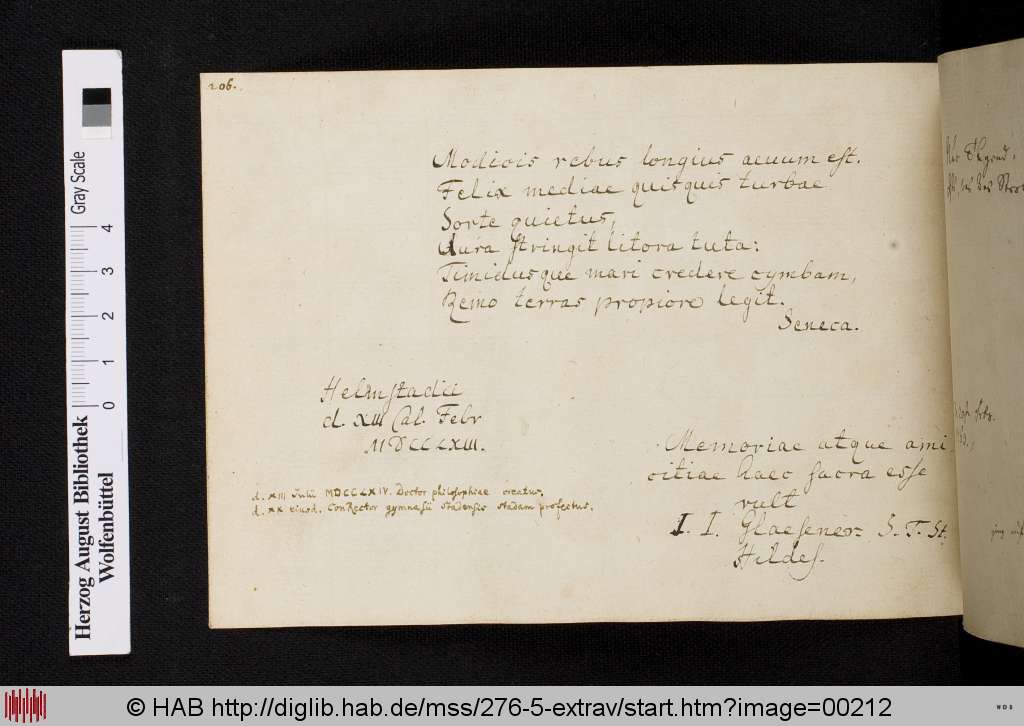 206.
Modicis rebus longius aeuum est.
Felix mediae quisquis turbae
Sorte quietus,
Aura stringit litora tuta:
Timidusque mari credere cymbam,
Remo terras propiore legit.
Seneca.
Helmstadii
d. XIII Cal. Febr
MDCCLXIII.
Memoriae atque ami
citiae haec sacra esse
vult
I. I. Glaesener S. T. St.
Hildes.
d. XIII Julii MDCCLXIV. Doctor philosophiae creatus,
d. XX eiusd. ConRector gymnasii Stadensis Stadam profectus.
Gray Scale
0 1 2 3 4
Herzog August Bibliothek
Wolfenbüttel
© HAB http://diglib.hab.de/mss/276-5-extrav/start.htm?image=00212